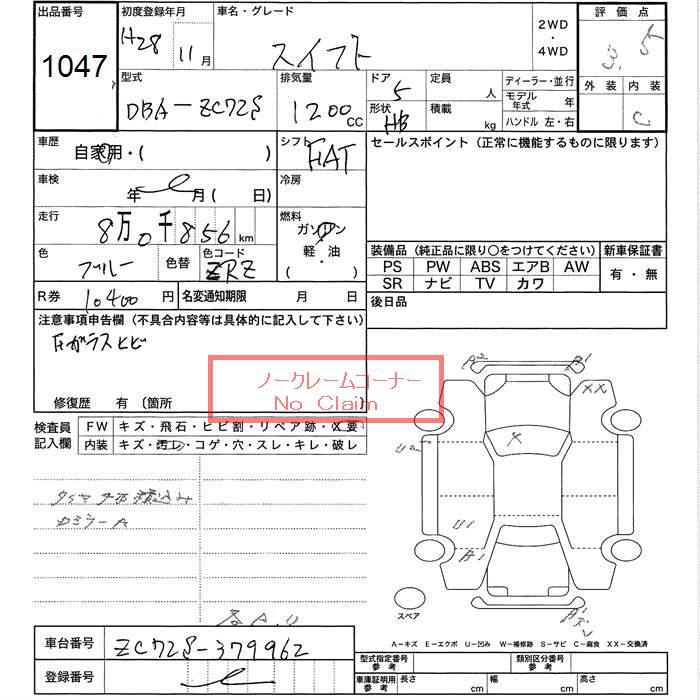 出品番号
1047
初度登録年月
H28 11月
車名・グレード
スイフト
2WD
・
4WD
評価点
3.5
外装 内装
C
型式
DBA-ZC72S
排気量
1200 CC
ドア
5
形状
HB
定員
人
積載
kg
ディーラー・並行
モデル年式 年
ハンドル 左・右
車歴
自家用・( )
シフト
FAT
セールスポイント (正常に機能するものに限ります)
車検
年 月( 日)
冷房
走行
8万0千856km
燃料
ガソリン
軽・油
( ・ )
色
ブルー
色替
色コード
ZRZ
装備品 (純正品に限り〇をつけてください)
新車保証書
PS PW ABS エアB AW
SR ナビ TV カワ
有・無
R券 10,400円
名変通知期限 月 日
後日品
注意事項申告欄 (不具合内容等は具体的に記入して下さい)
Fガラスヒビ
ノークレームコーナー
No Claim
修復歴 有 〔箇所 〕
検査員記入欄
FW キズ・飛石・ヒビ割・リペア跡・X要
内装 キズ・汚レ・コゲ・穴・スレ・キレ・破レ
タイヤ4本積込み
ミラーA
A2
A1
XX
X
U2
U1
A1
スペア
A,U
A-キズ E-エクボ U-凹み W-補修跡 S-サビ C-腐食 XX-交換済
車台番号 ZC72S-379962
登録番号
型式指定番号 参考
類別区分番号 参考
車庫証明用 参考 長さ cm 幅 cm 高さ cm